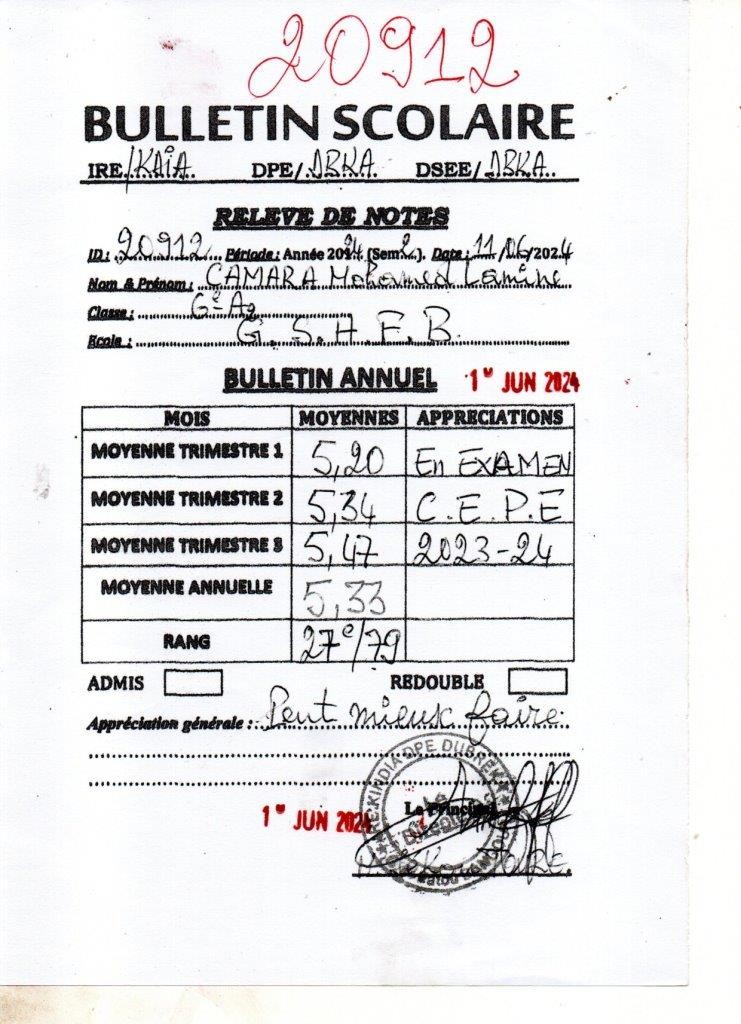 20912
BULLETIN SCOLAIRE
IRE/KAÏA. DPE/DBKA. DSEE/DBKA.
RELEVE DE NOTES
ID: 20912 Période: Année 2024 (Sem 2). Date: 11/06/2024
Nom & Prénom: CAMARA Mohamed Lamine
Classe: 6e A2
Ecole: G.S.H.F.B.
BULLETIN ANNUEL 1er JUN 2024
MOIS MOYENNES APPRECIATIONS
MOYENNE TRIMESTRE 1 5,20 En EXAMEN
MOYENNE TRIMESTRE 2 5,34 C.E.P.E
MOYENNE TRIMESTRE 3 5,47 2023-24
MOYENNE ANNUELLE 5,33
RANG 27e/79
ADMIS REDOUBLE
Appréciation générale: Peut mieux faire.
KINDIA DPE DUBREKA
1er JUN 2024 Le Principal